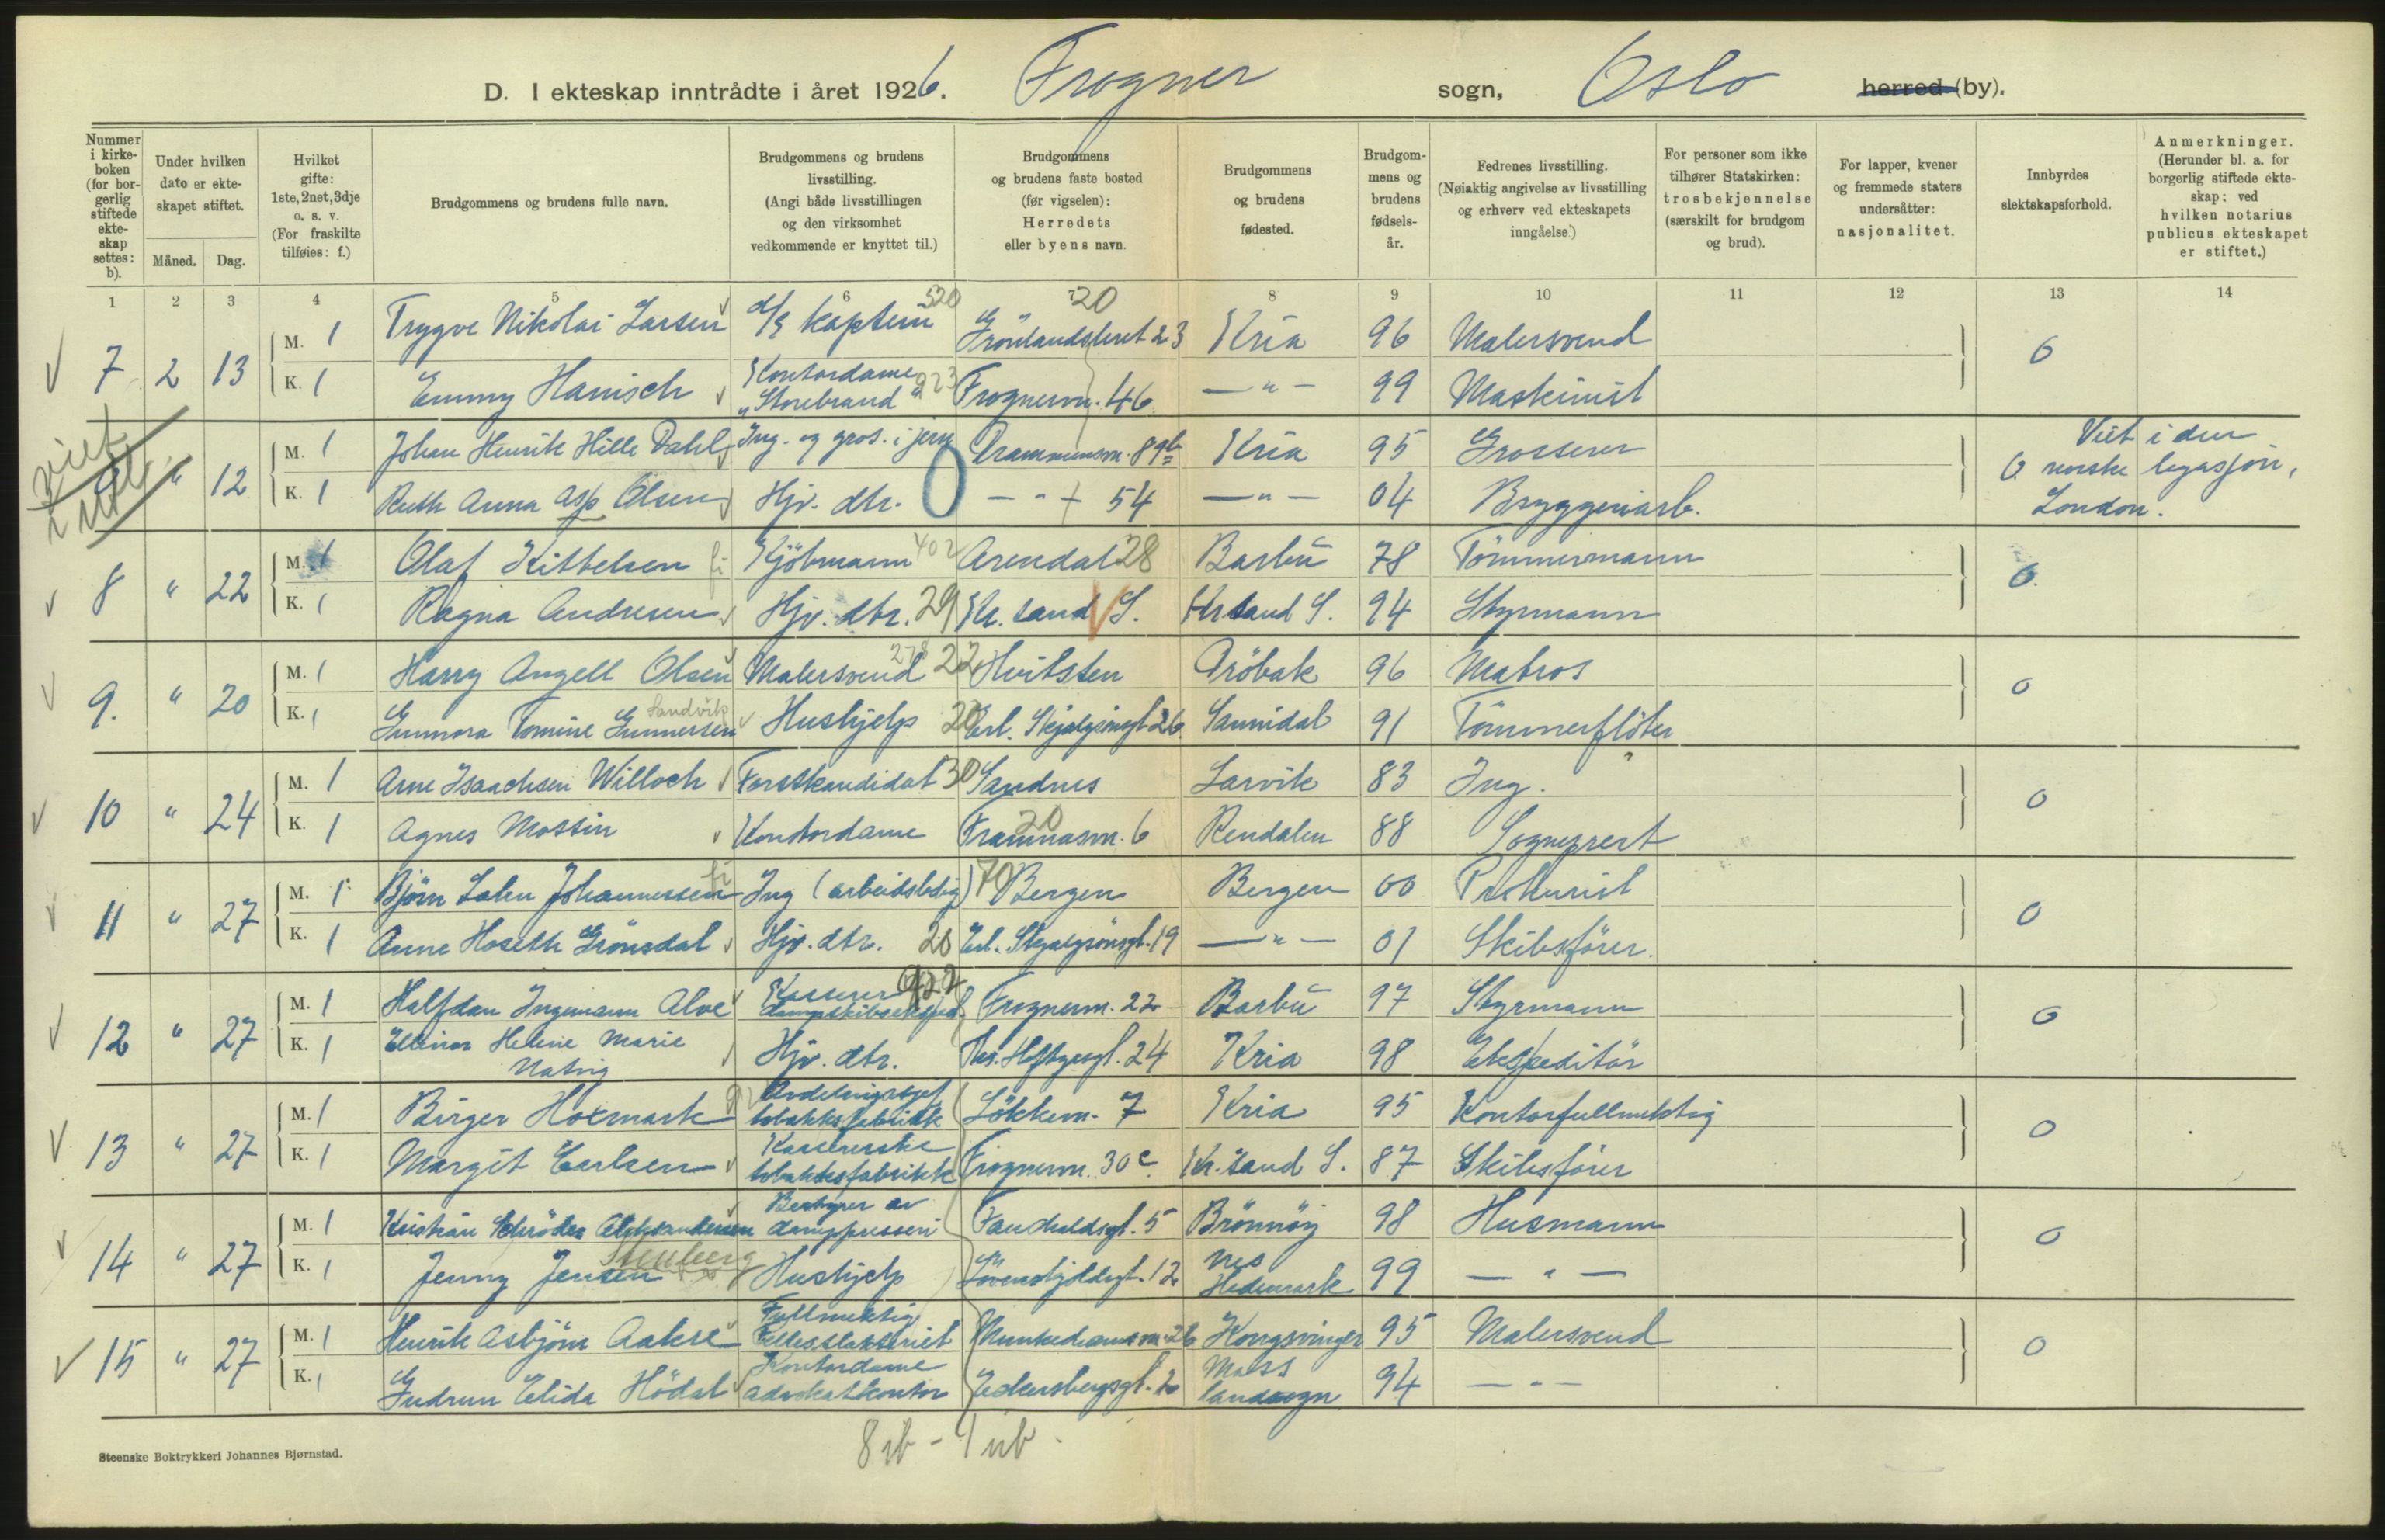 D. I ekteskap inntrådte i året 1926. Frogner sogn, Oslo herred (by).
Nummer i kirkeboken (for borgerlig stiftede ekteskap settes: b).
Under hvilken dato er ekteskapet stiftet.
Måned. Dag.
Hvilket gifte: 1ste, 2net, 3dje o. s. v. (For fraskilte tilføies: f.)
Brudgommens og brudens fulle navn.
Brudgommens og brudens livsstilling. (Angi både livsstillingen og den virksomhet vedkommende er knyttet til.)
Brudgommens og brudens faste bosted (før vigselen): Herredets eller byens navn.
Brudgommens og brudens fødested.
Brudgommens og brudens fødselsår.
Fedrenes livsstilling. (Nøiaktig angivelse av livsstilling og erhverv ved ekteskapets inngåelse.)
For personer som ikke tilhører Statskirken: trosbekjennelse (særskilt for brudgom og brud).
For lapper, kvener og fremmede staters undersåtter: nasjonalitet.
Innbyrdes slektskapsforhold.
Anmerkninger. (Herunder bl. a. for borgerlig stiftede ekteskap: ved hvilken notarius publicus ekteskapet er stiftet.)
1 2 3 4 5 6 7 8 9 10 11 12 13 14
7 2 13 M. 1 Trygve Nikolai Larsen kaptein 520 20 Grönlandsleret 23 Kria 96 Malersvend 0
K. 1 Emmy Hanisch Kontordame "Storebrand" 923 Frognervn. 46 — " — 99 Maskinist
" 12 M. 1 Johan Henrik Hille Dahl Ing. og gros. i jern Drammensvn. 89b Kria 95 Grosserer 0 Viet i den norske legasjon, London.
K. 1 Ruth Anna Asp Olsen Hjv. dtr. 0 — " — 54 — " — 04 Bryggeriarb.
8 " 22 M. 1 Olaf Kittelsen Kjöbmann 402 Arendal 28 Barbu 78 Tömmermann 0
K. 1 Ragna Andresen Hjv. dtr. 29 Kr. sand S. Kr. sand S. 94 Styrmann
9. " 20 M. 1 Harry Angell Olsen Malersvend 278 22 Hvitsten Dröbak 96 Matros 0
K. 1 Gunnora Tomine Gunnersen Sandvik Hushjelp 20 Erl. Skjalgsönsgt 26 Sannidal 91 Tömmerflöter
10 " 24 M. 1 Arne Isaachsen Willoch Forstkandidat 30 Sandnes Larvik 83 Ing. 0
K. 1 Agnes Mossin Kontordame 20 Framnæsvn. 6 Rendalen 88 Sogneprest
11 " 27 M. 1 Björn Lalen Johannessen Ing (arbeidsledig) 70 Bergen Bergen 00 Prokurist 0
K. 1 Anne Hoseth Grönsdal Hjv. dtr. 20 Erl. Skjalgsönsgt. 19 — " — 01 Skibsförer.
12 " 27 M. 1 Halfdan Ingemann Alve Kasserer dampskibseksped. 922 Frognervn. 22 Barbu 97 Styrmann 0
K. 1 Ellinor Helene Marie Natvig Hjv. dtr. Ths. Heftyesgt. 24 Kria 98 Ekspeditör
13 " 27 M. 1 Birger Hoxmark Avdelingssjef tobakksfabrikk Lökkevn. 7 Kria 95 Kontorfullmektig 0
K. 1 Margit Carlsen Kassererske tobakksfabrikk Frognervn. 30c. Kr. sand S. 87 Skibsförer
14 " 27 M. 1 Kristian Schröder Aleksandersen Bestyrer av damppresseri Fauchaldsgt. 5 Brönnöy 98 Husmann 0
K. 1 Jenny Jensen Stenberg Hushjelp Lövenskjoldsgt. 12 Nes Hedemark 99 — " —
15 " 27 M. 1 Henrik Asbjörn Aakre Fullmektig Fellesslakteriet Munkedamsvn. 26 Kongsvinger 95 Malersvend 0
K. 1 Gudrun Elida Hödal Kontordame advokatkontor Eckersbergsgt. Moss landsogn 94 — " —
Steenske Boktrykkeri Johannes Bjørnstad.